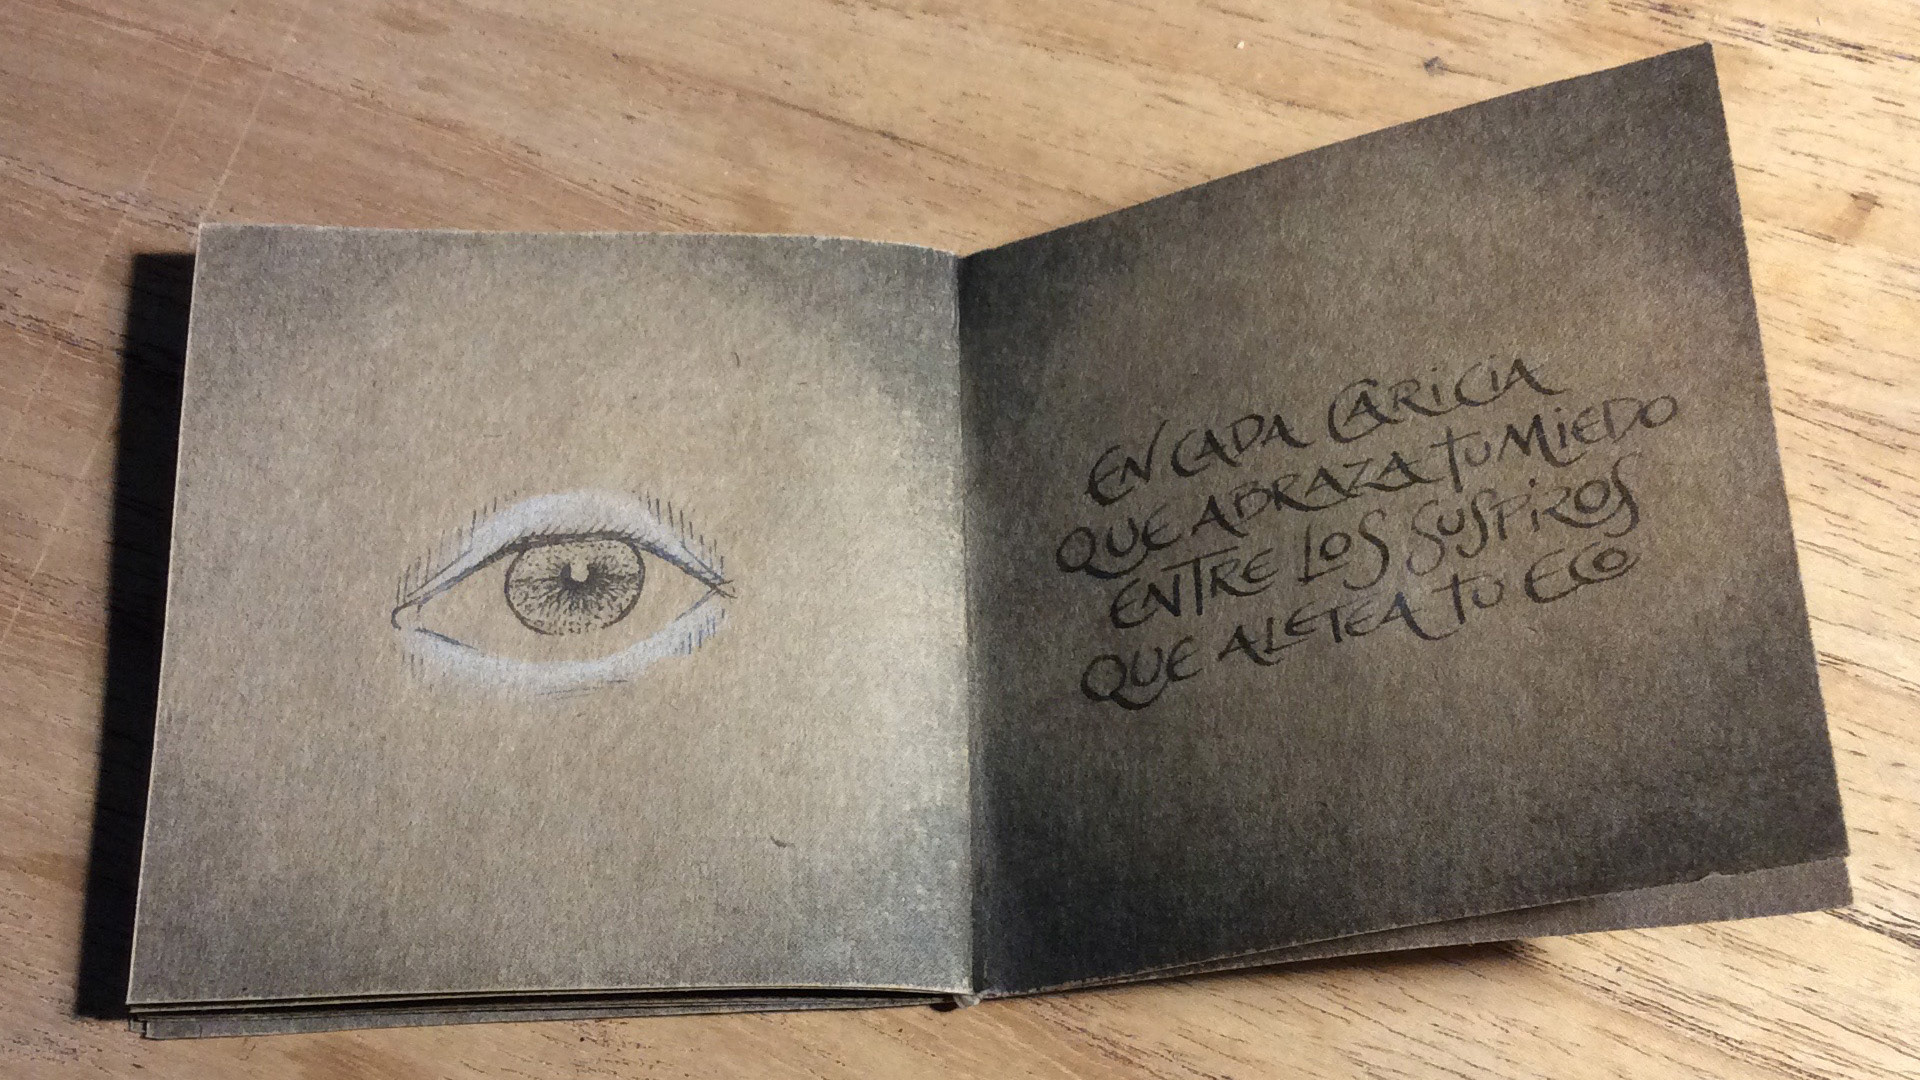 EN CADA CARICIA
QUE ABRAZA TU MIEDO
ENTRE LOS SUSPIROS
QUE ALETEA TU ECO